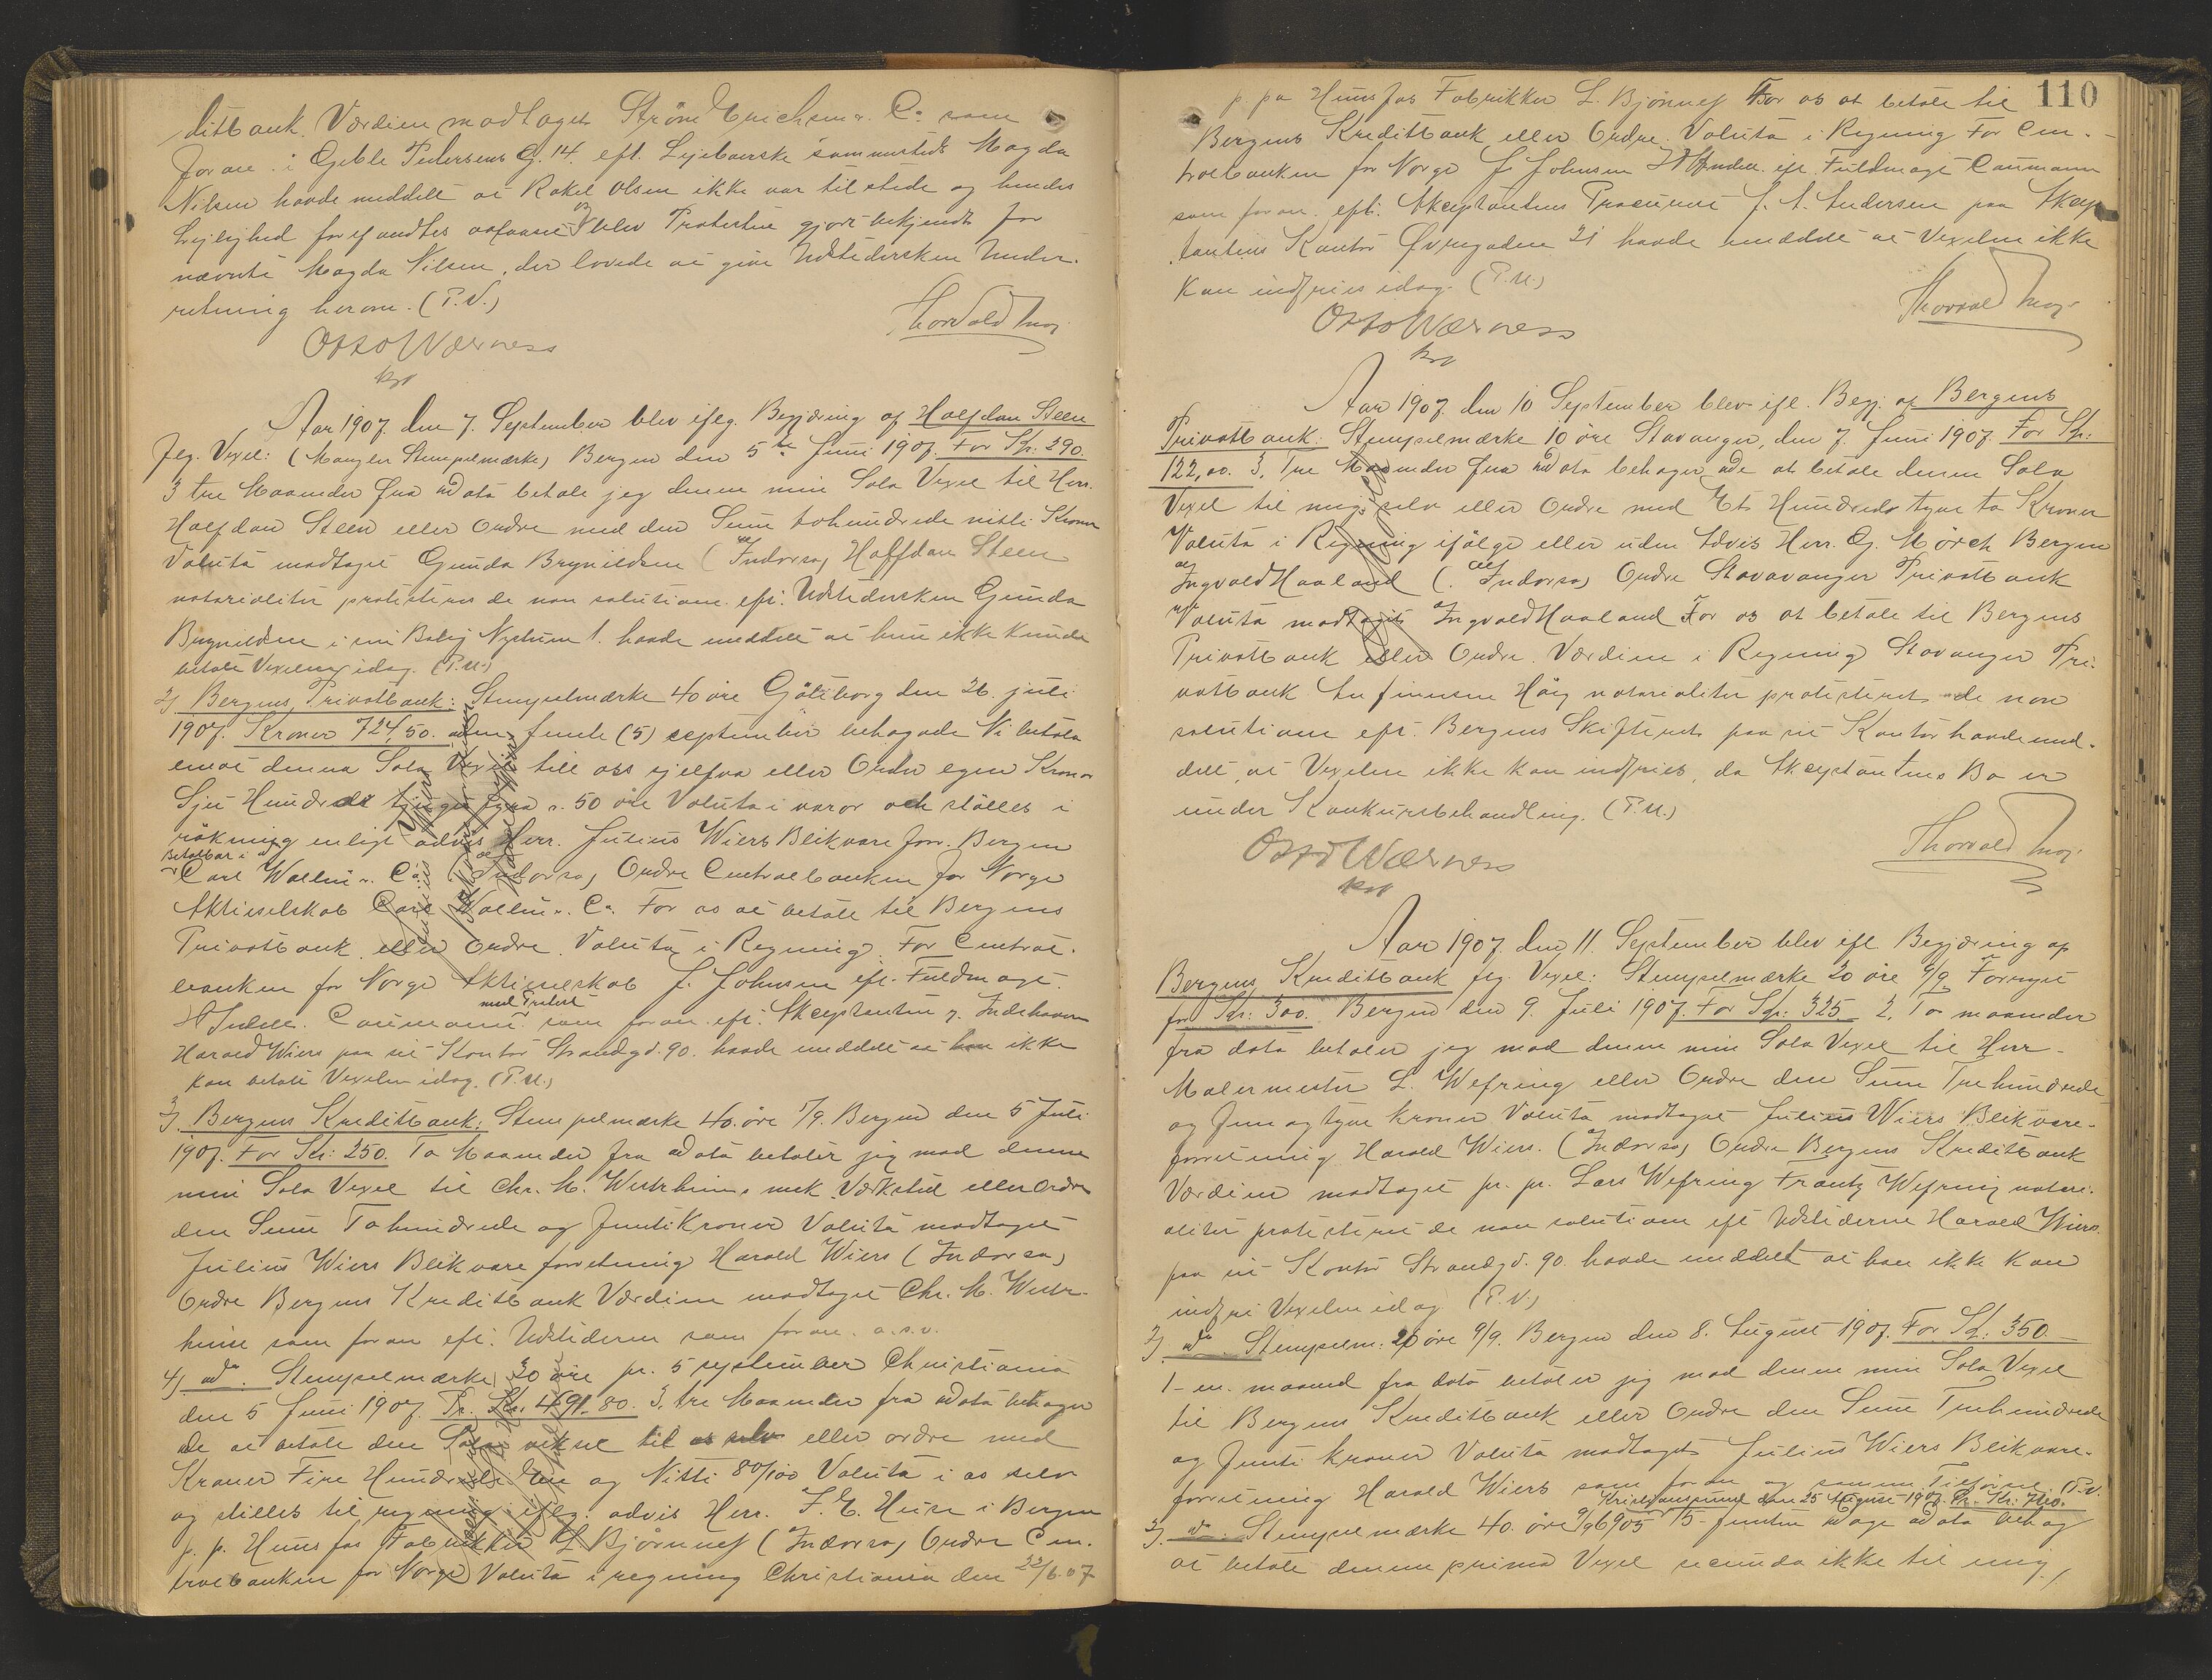 ditbank. Værdien modtaget Ström Erichsen & Co som
foran i Geble Pedersens G. 14. eft. Lejeboerske sammesteds Magda
Nilsen havde meddelt at Rakel Olsen ikke var tilstede og hendes
Lejlighed forefandtes aflaaset og blev Protesten gjort bekjendt for
nævnte Magda Nilsen, der lovede at give Udstedersken Under-
retning herom. (P.V.)
Otto Wærness Thorvald
Aar 1907 den 7. September blev ifølg. Begjæring af Halfdan Steen
flg. Vexel: (Mangler Stempelmærke) Bergen den 5te Juni 1907. For Kr. 290.
3 tre Maaneder fra Dato betale jeg denne min Sola Vexel til Herr
Halfdan Steen eller Ordre med den Sum tohundrede nitti Kroner
Valuta modtaget Gunda Brynildsen (Indorso) Halfdan Steen
notarialiter protesteres de non solutione eft. Udstedersken Gunda
Brynildsen i sin Bolig Nystuen 1. havde meddelt at hun ikke kunde
betale Vexelen idag. (P.U.)
2) Bergens Privatbank: Stempelmærke 40 öre Göteborg den 26. juli
1907. Kronor 724,50. den femte (5) september behagade Ni betala
emot denna Sola Vexel till oss sjelfva eller Order egen Kronor
Sju Hundrade tjugu fyra & 50 öre Valuta i varor och ställes i
räkning enligt advis Herr. Julius Wiers Blikvare forr. Bergen
Betalbar i
Carl Wallin & Co. (Indorso) Ordre Centralbanken for Norge
Aktieselskab Carl Wallin & Co. For os at betale til Bergens
Privatbank eller Ordre. Valuta i Regning. For Central-
banken for Norge Aktieselskab J. Johnsen eft. Fuldmagt
med Protest
Caumann som foran eft. Akceptanten v. Indehaver
Harald Wiers paa sit Kontor Strandgd. 90. havde meddelt at han ikke
kan betale Vexelen idag. (P.U.)
3) Bergens Kreditbank: Stempelmærke 40. öre 7/9. Bergen den 5 Juli
1907. For Kr: 250. To Maaneder fra Dato betaler jeg mod denne
min Sola Vexel til Chr. M. Vestrheims mek. Værksted eller Ordre
den Sum Tohundrede og femti Kroner Valuta modtaget
Julius Wiers Blikvare forretning Harald Wiers (Indorso)
Ordre Bergens Kreditbank Værdien modtaget Chr. M. Vestr-
heim som foran eft. Udstederen som foran o.s.v.
4) do. Stempelmærke 30 öre pr. 5 september Christiania
den 5 Juni 1907. Pr. Kr. 491.80. 3, tre Maaneder fra Dato behager
De at betale den Sola veksel til os selv eller ordre med
Kroner Fire Hundrede En og Nitti 80/100 Valuta i os selv
og stilles til regning iflg. advis Herr. F. E. Heise i Bergen
p. p. Hunsfos Fabrikker L Bjørnnes (Indorso) Ordre Cen-
tralbanken for Norge Valuta i regning Christiania den 22/6.07
110
p. pa Hunsfos Fabrikker L. Bjönnes For os at betale til
Bergens Kreditbank eller Ordre. Valuta i Regning For Cen-
tralbanken for Norge J. Johnsen eft. Fuldmagt Caumann
som foran. eft. Akceptantens Procurist J. A. Andersen paa Akcep
tantens Kontor Øvregaden 21 havde meddelt at Vexelen ikke
kan indfries idag. (P.U.)
Otto Wærness Thorvald
Aar 1907. den 10 September blev ifl. Begj. af Bergens
Privatbank: Stempelmærke 10 öre Stavanger, den 7. Juni 1907. For Kr:
122,00. 3. Tre Maaneder fra Dato behager De at betale denne Sola
Vexel til mig selv eller Ordre med Et Hundrede tyve to Kroner
Valuta i Regning ifölge eller uden Advis Herr. G. Mörch Bergen
Ingvald Haaland (. Indorso) Ordre Stavavanger Privatbank
Valuta modtaget Ingvald Haaland For os at betale til Bergens
Privatbank eller Ordre. Værdien i Regning Stavanger Pri-
vatbank notarialiter protesteret de non
solutione eft. Bergens Skifteret paa sit Kontor havde med-
delt, at Vexelen ikke kan indfries, da Akceptantens Bo er
under Konkursbehandling. (P.U.)
Otto Wærness Thorvald
Aar 1907. den 11. September blev ifl. Begjæring af
Bergens Kreditbank flg. Vexel: Stempelmærke 20 öre 9/9 Fornyet
for Kr: 300. Bergen den 9. Juli 1907. For Kr: 325. 2, To maaneder
fra dato betaler jeg mod denne min Sola Vexel til Herr
Malermester L. Wefring eller Ordre den Sum Trehundrede
og fem og tyve kroner Valuta modtaget Julius Wiers Blikvare-
forretning Harald Wiers. (Indorso) Ordre Bergens Kreditbank
Værdien modtaget pr. pr. Lars Wefring Frantz Wefring notari-
aliter protesteret de non solutione eft Udstederne Harald Wiers
paa sit Kontor Strandgd. 90. havde meddelt at han ikke kan
indfri Vexelen idag (P.V.)
2) do. Stempelm: 20 öre 9/9. Bergen den 8. August 1907. For Kr: 350
1 - en. maaned fra dato betaler jeg mod denne min Sola Vexel
til Bergens Kreditbank eller Ordre den Sum Trehundrede
og femti kroner Valuta modtaget Julius Wiers Blikvare-
forretning Harald Wiers som foran og samme Tilföiende (P.V.
Kristianssund den 25 August 1907. Pr. Kr: 740.
3) do. Stempelmærke 40. öre 9/9 6905 15 - femten dage dato behag
at betale denne prima Vexel secunda ikke til mig